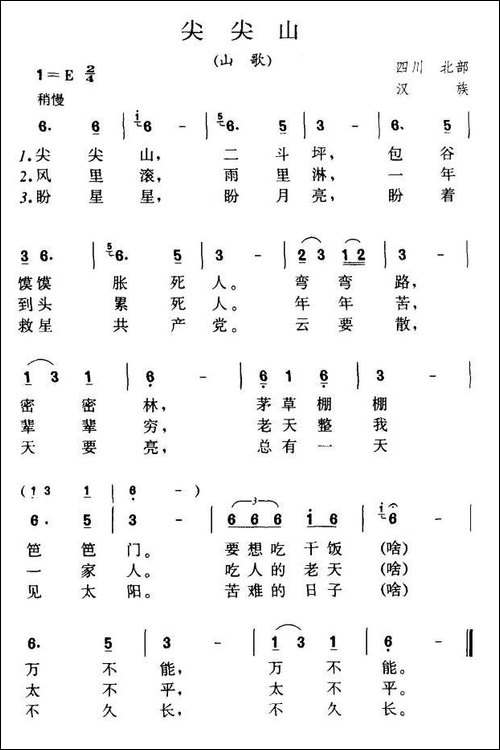 尖尖山
(山歌)
1=E 2/4
四川 北部
汉 族
稍慢
6. 6 | i6 - | 6. 5 | 3 - | 6. 5
1.尖 尖 山, 二 斗 坪, 包 谷
2.风 里 滚, 雨 里 淋, 一 年
3.盼 星 星, 盼 月 亮, 盼 着
3 6. | 56. 5 | 3 - | 2 3 1 2 | 3 -
馍馍 胀 死 人。 弯 弯 路,
到头 累 死 人。 年 年 苦,
救星 共 产 党。 云 要 散,
1 3 1 | 6 - | 6 1 6 | 3 -
密 密 林, 茅 草 棚 棚
辈 辈 穷, 老 天 整 我
天 要 亮, 总 有 一 天
(1 3 1 | 6 -)
6. 5 | 3 - | 6 6 6 i 6 | i6 -
笆 笆 门。 要 想 吃 干 饭 (啥)
一 家 人。 吃 人 的 老 天 (啥)
见 太 阳。 苦 难 的 日 子 (啥)
6. 5 | 3 - | 1 3 1 | 6 -
万 不 能, 万 不 能。
太 不 平, 太 不 平。
不 久 长, 不 久 长。